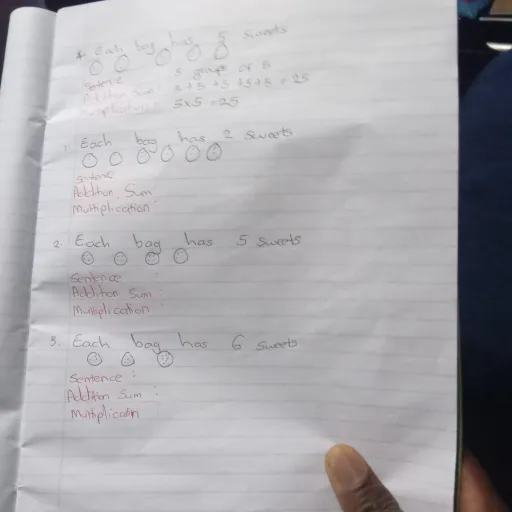 Each bag has 5 sweets
Sentence 5 groups of 5
Addition Sum: 5+5+5+5+5 = 25
Multiplication: 5x5 = 25
1. Each bag has 2 sweets
Sentence
Addition Sum
Multiplication
2. Each bag has 5 sweets
Sentence :
Addition Sum :
Multiplication :
3. Each bag has 6 sweets
Sentence :
Addition Sum :
Multiplication